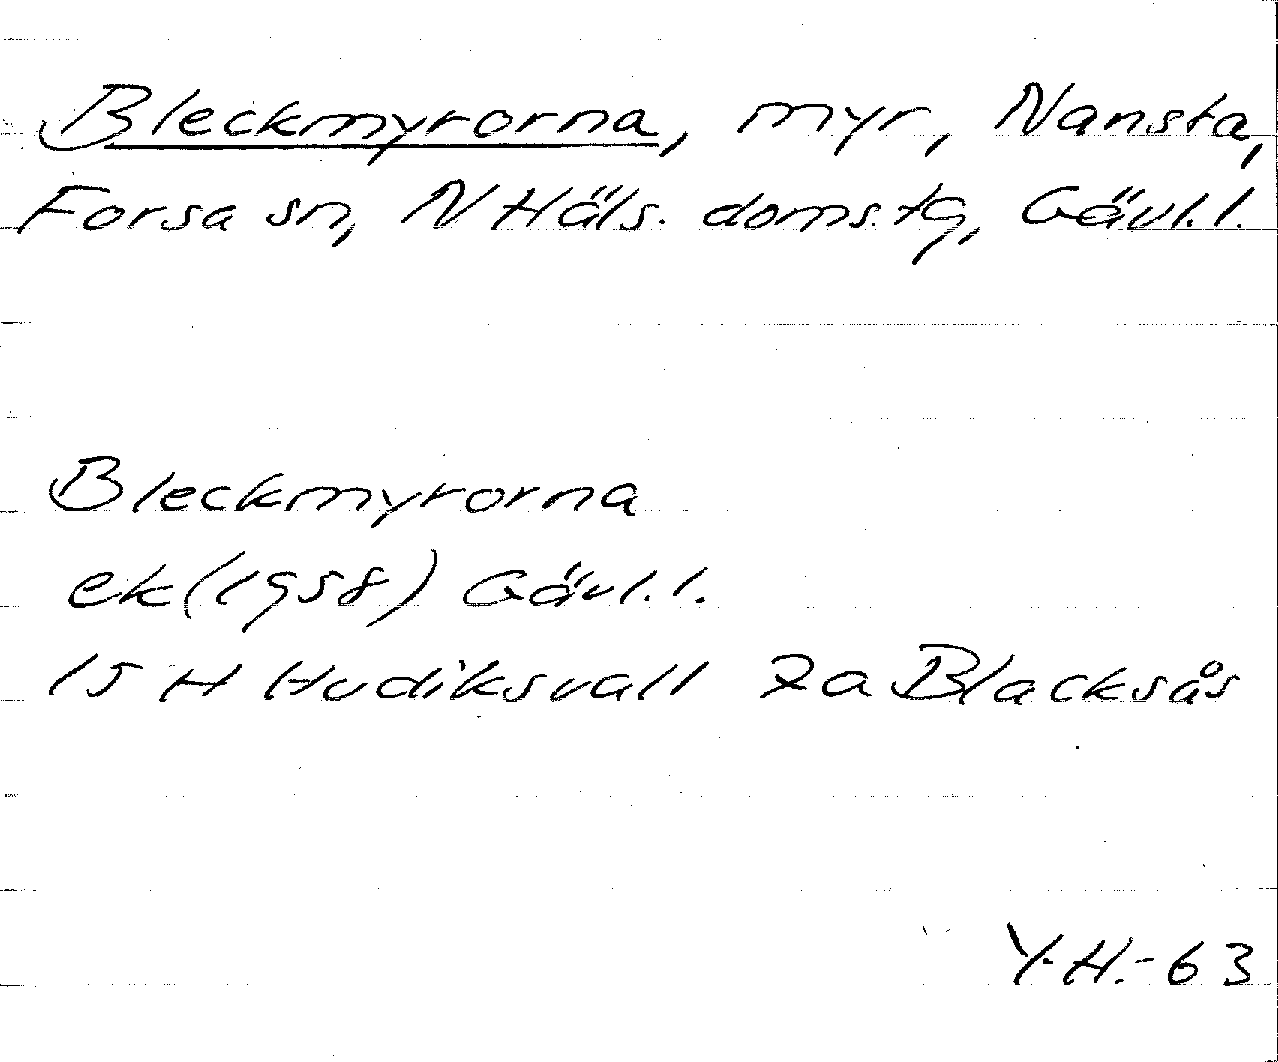 Bleckmyrorna, myr, Nansta,
Forsa sn, N Häls. doms.tg, Gävl.l.
Bleckmyrorna
ek(1958) Gävl.l.
15 H Hudiksvall 7a Blacksås
Y.H.-63